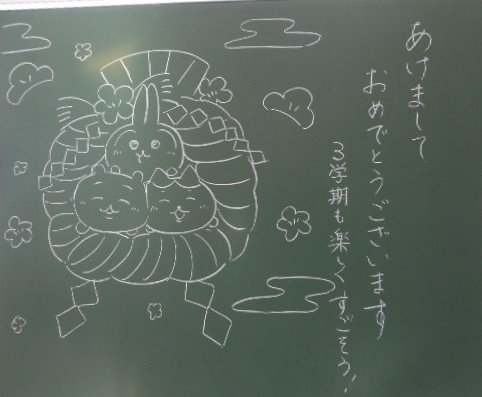 あけまして
おめでとうございます
3学期も楽しくすごそう!!